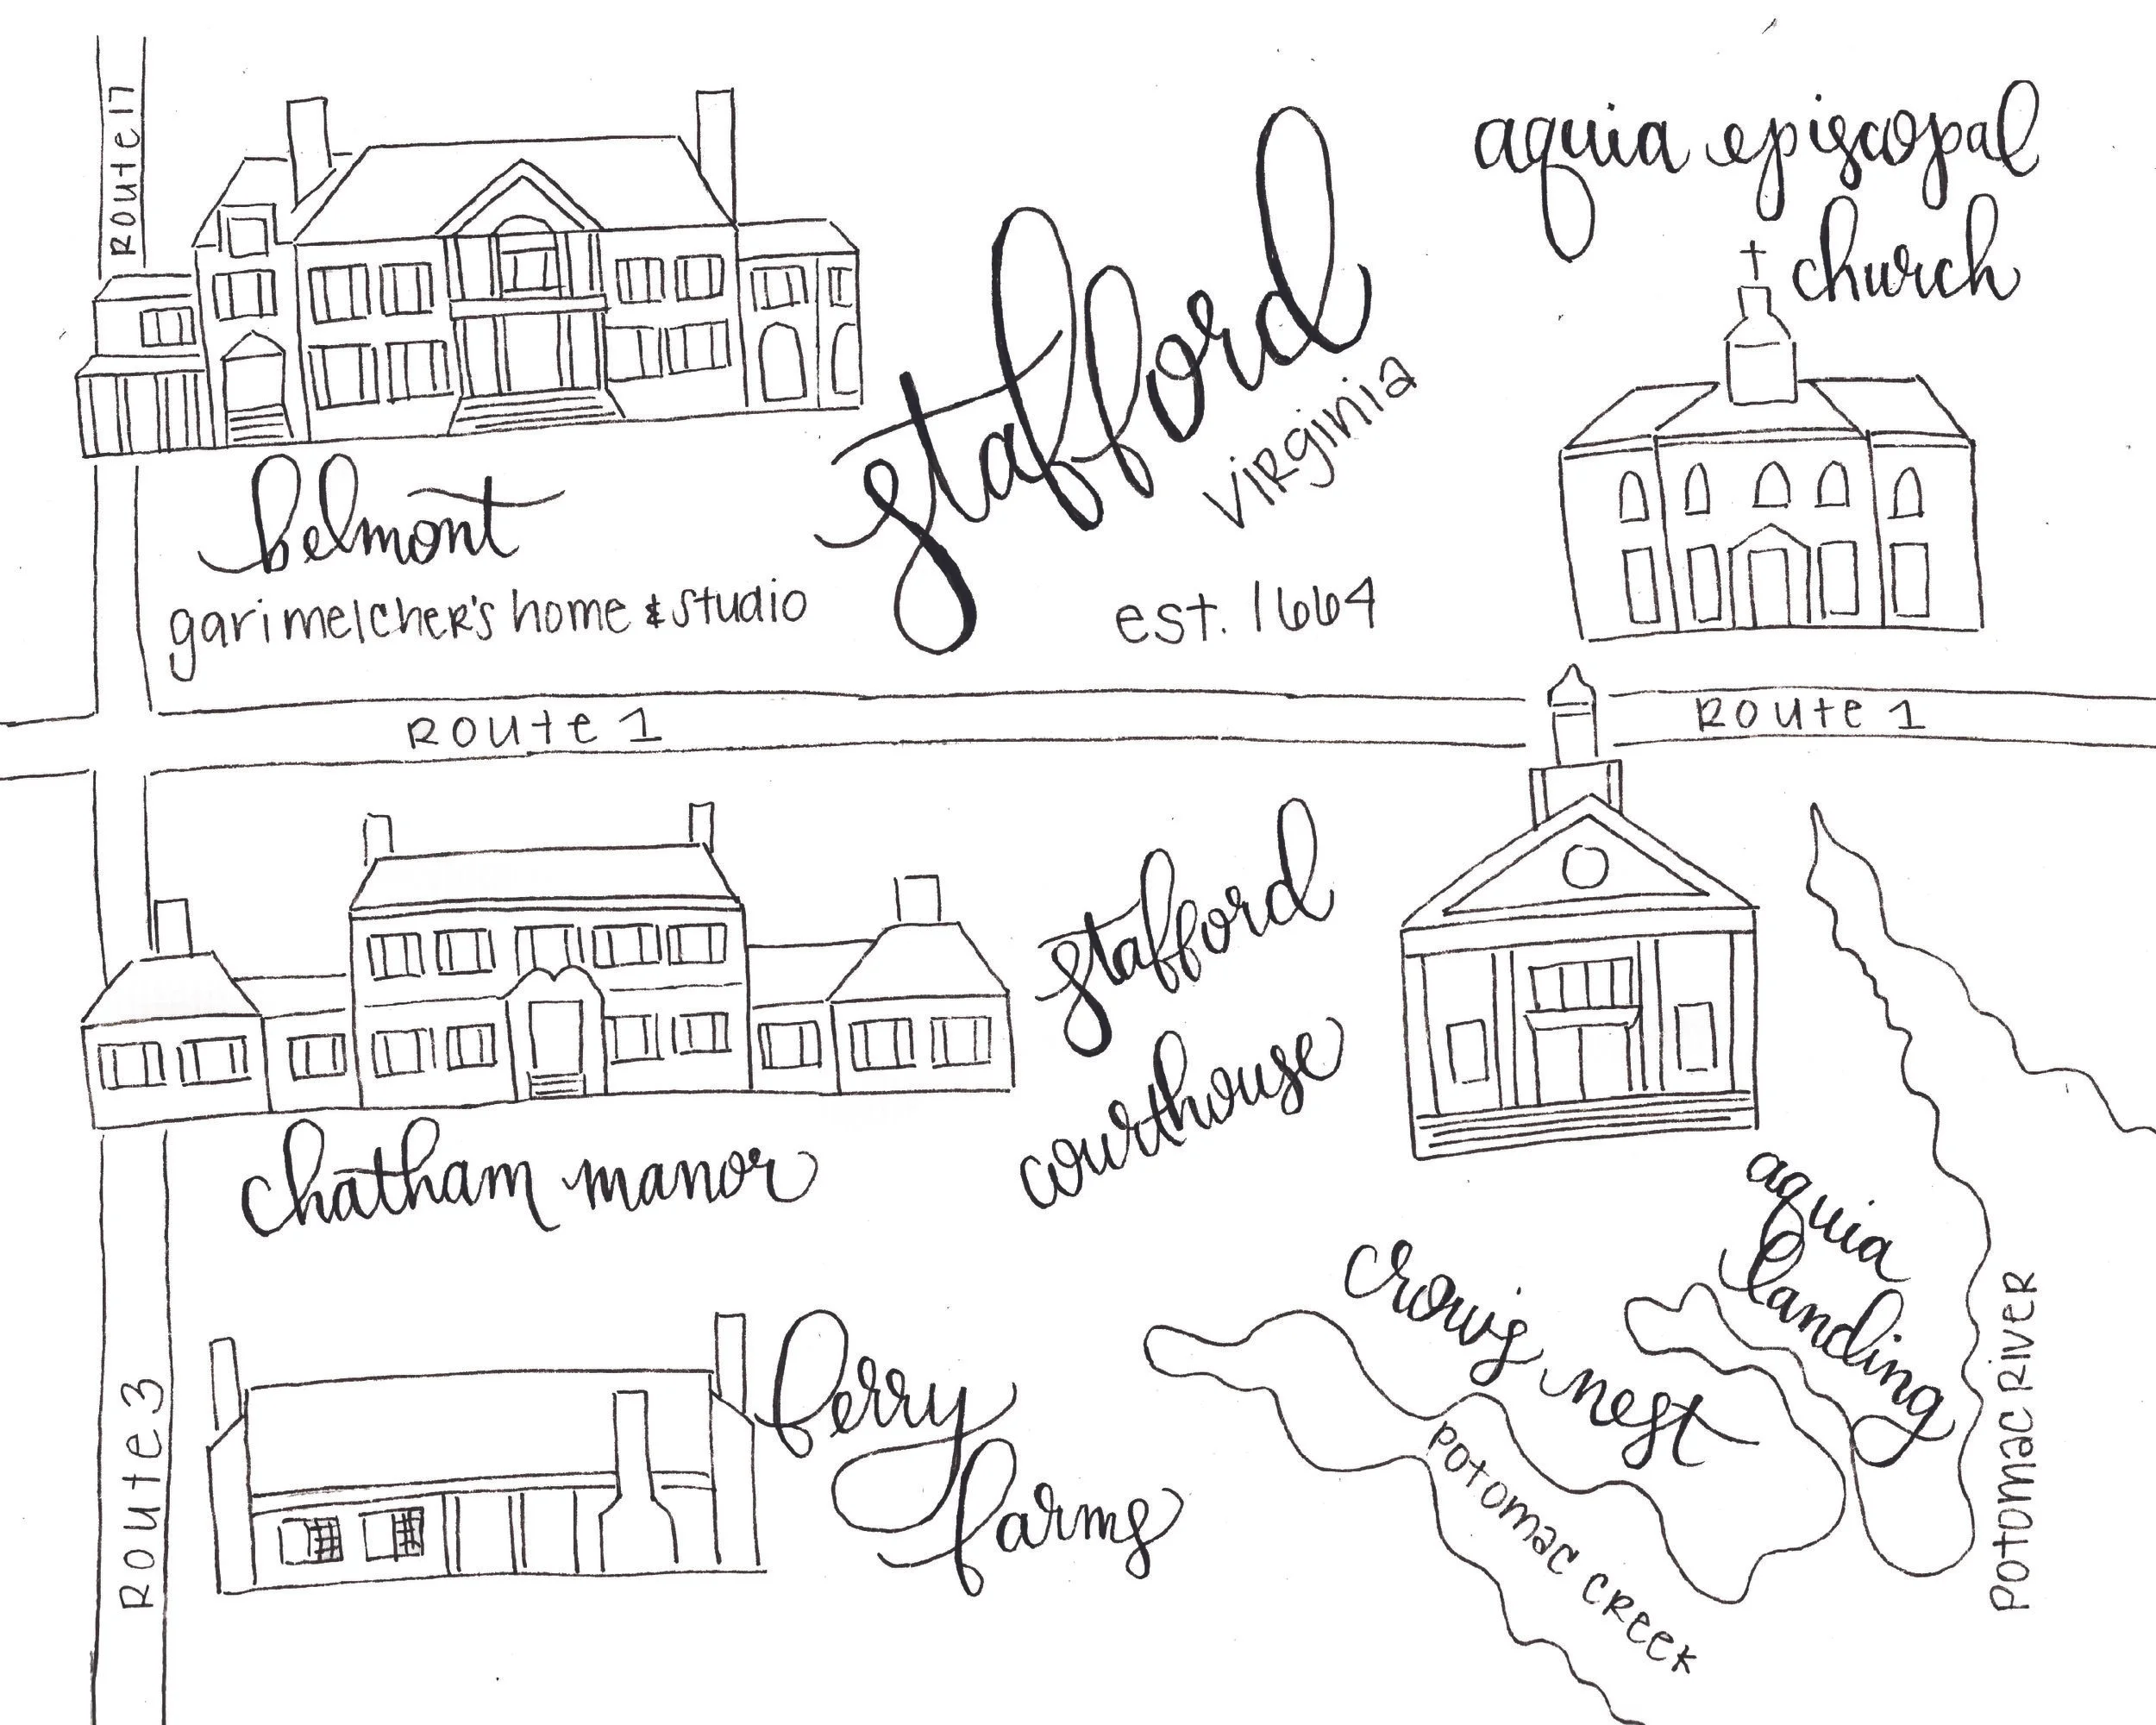 Route 17
aquia episcopal
church
stafford
virginia
est. 1664
belmont
gari melcher's home & studio
Route 1
Route 1
stafford
courthouse
chatham manor
aquia
landing
crow's nest
Potomac River
Potomac Creek
ferry
farms
Route 3